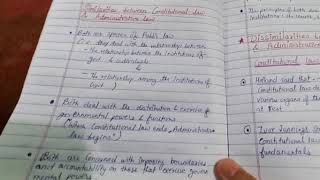 Similarities between Constitutional law
& Administrative law
Both are species of Public law
i.e. they deal with the relationships between
- The relationship between the institutions of
govt & individuals
&
- The relationship among the institutions of
Govt )
• Both deal with the distribution & exercise of
governmental powers & functions
"Where Constitutional law ends, Administrative
law begins"
• Both are concerned with imposing boundaries
and accountability on those that exercise govern
mental powers
The principles of both
institutions -
Dissimilarities
& Administra
Constitutional law
Holland said that -
Constitutional law
various organs of the
at rest
Ivor Jennings
Constitu
fundamentals